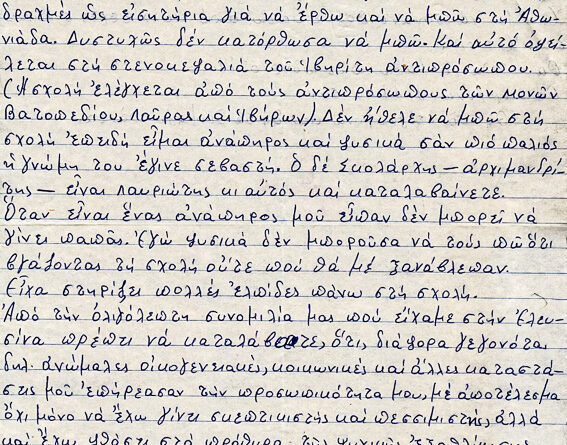 δραχμές ὡς εἰσητήρια γιά νά ἔρθω καί νά μπῶ στή Ἀθω-
νιάδα. Δυστυχῶς δέν κατόρθωσα νά μπῶ. Καί αὐτό ὀφεί-
λεται στή στενοκεφαλιά τοῦ Ἰβηρίτη ἀντιπρόσωπου.
(Ἡ σχολή ἐλέγχεται ἀπό τούς ἀντιπρόσωπους τῶν μονῶν
Βατοπεδίου, Λαύρας καί Ἰβήρων). Δέν ἤθελε νά μπῶ στή
σχολή ἐπειδή εἶμαι ἀνάπηρος καί φυσικά σάν πιό παλιός
ἡ γνώμη του ἔγινε σεβαστή. Ὁ δέ Σχολάρχης — ἀρχιμανδρί-
της — εἶναι Λαυριώτης κι αὐτός καί καταλαβαίνετε.
Ὅταν εἶναι ἕνας ἀνάπηρος μοῦ εἶπαν δέν μπορεῖ νά
γίνει παπᾶς. Ἐγώ φυσικά δέν μποροῦσα νά τούς πῶ ὅτι
βγάζοντας τή σχολή οὔτε πού θά μέ ξανάβλεπαν.
Εἶχα στηρίξει πολλές ἐλπίδες πάνω στή σχολή.
Ἀπό τήν ὀλιγόλεπτη συνομιλία μας πού εἴχαμε στήν Ἐλευ-
σίνα πρέπει νά καταλάβατε, ὅτι, διάφορα γεγονότα
δηλ. ἀνώμαλες οἰκογενειακές, κοινωνικές καί ἄλλες καταστά-
σεις μοῦ ἐπηρέασαν τήν προσωπικότητα μου, μέ ἀποτέλεσμα
ὄχι μόνο νά ἔχω γίνει σκεπτικιστής καί πεσιμιστής, ἀλλά
καί ἔχω φθάσει στά πρόθυρα τῆς ψυχικῆς